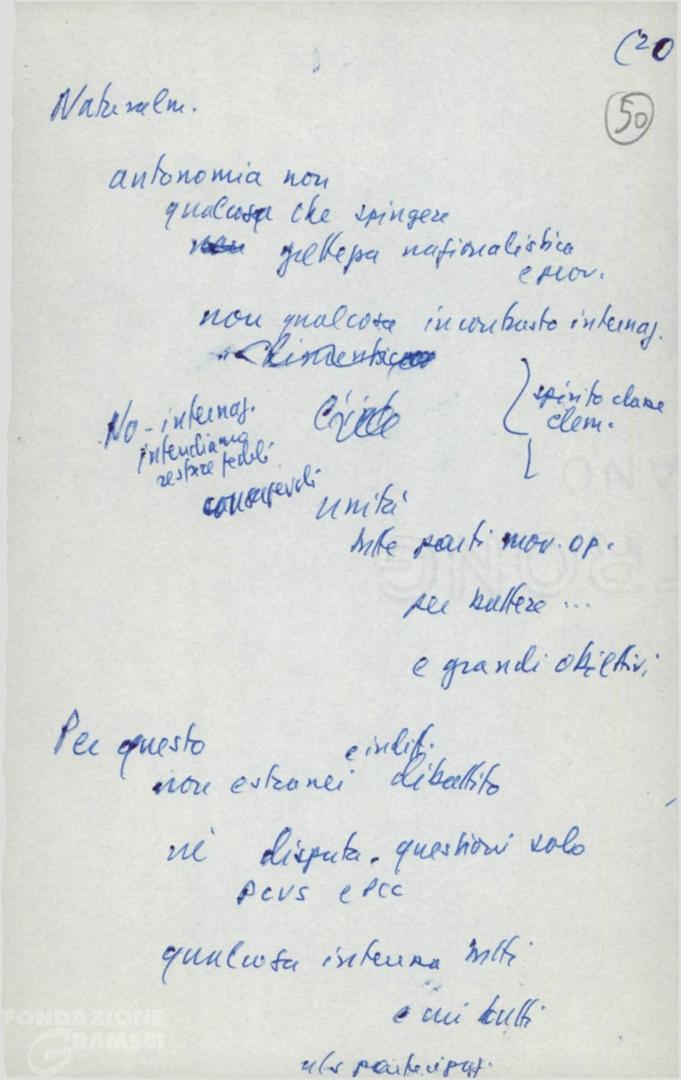 (20
50
Naturalm.
autonomia non
qualcosa che spingere
grettezza nazionalistica
e prov.
non qualcosa in contrasto internaz.
No - internaz.
intendiamo
restare fedeli
consapevoli
spirito classe
elem.
unità
tutte parti mov. op.
per battere ...
e grandi obiettivi
Per questo
e indif.
non estranei dibattito
nè disputa. questioni solo
PCUS e PCC
qualcosa interna tutti
e cui tutti
partecipaz.
FONDAZIONE
GRAMSCI